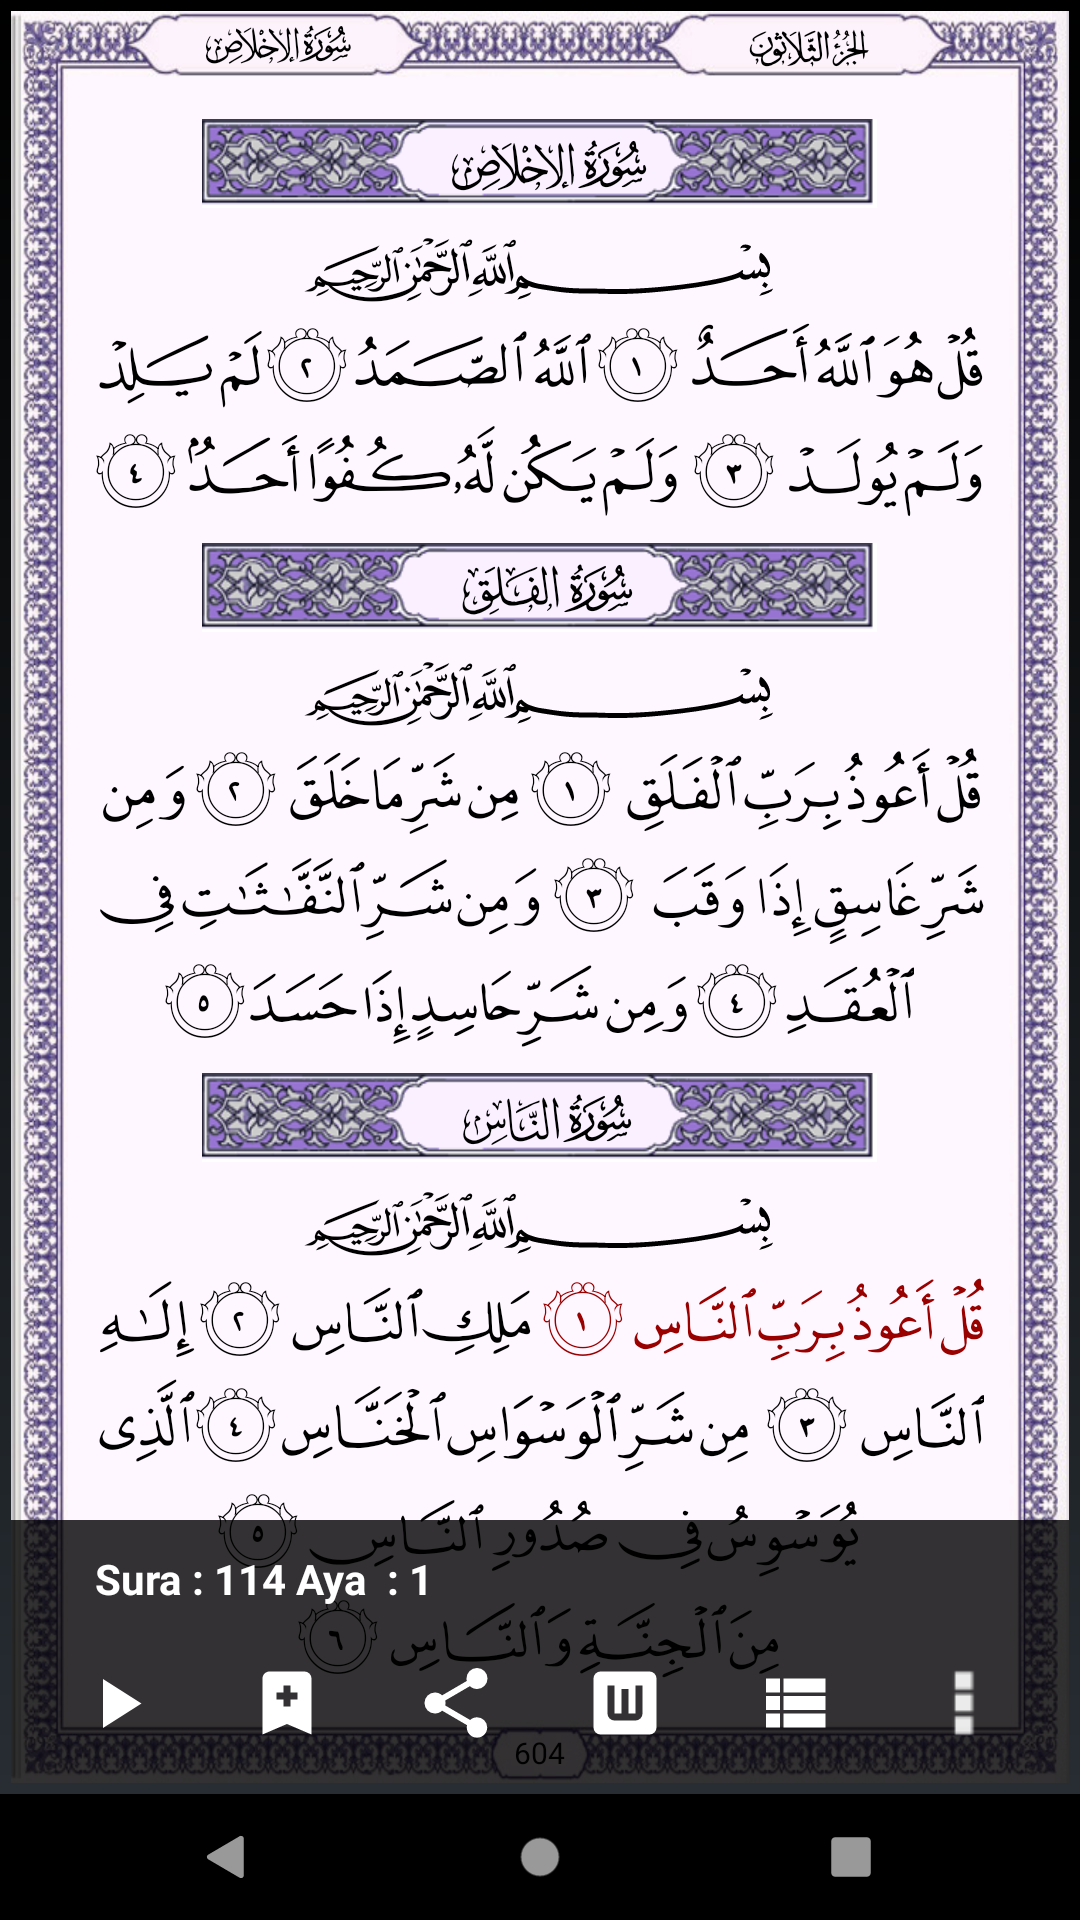 الجزء الثلاثون
سورة الإخلاص
سُورَةُ الإِخْلَاصِ
بِسْمِ ٱللَّهِ ٱلرَّحْمَٰنِ ٱلرَّحِيمِ
قُلْ هُوَ ٱللَّهُ أَحَدٌ ١ ٱللَّهُ ٱلصَّمَدُ ٢ لَمْ يَلِدْ
وَلَمْ يُولَدْ ٣ وَلَمْ يَكُن لَّهُۥ كُفُوًا أَحَدٌۢ ٤
سُورَةُ الفَلَقِ
بِسْمِ ٱللَّهِ ٱلرَّحْمَٰنِ ٱلرَّحِيمِ
قُلْ أَعُوذُ بِرَبِّ ٱلْفَلَقِ ١ مِن شَرِّ مَا خَلَقَ ٢ وَمِن
شَرِّ غَاسِقٍ إِذَا وَقَبَ ٣ وَمِن شَرِّ ٱلنَّفَّٰثَٰتِ فِى
ٱلْعُقَدِ ٤ وَمِن شَرِّ حَاسِدٍ إِذَا حَسَدَ ٥
سُورَةُ النَّاسِ
بِسْمِ ٱللَّهِ ٱلرَّحْمَٰنِ ٱلرَّحِيمِ
قُلْ أَعُوذُ بِرَبِّ ٱلنَّاسِ ١ مَلِكِ ٱلنَّاسِ ٢ إِلَٰهِ
ٱلنَّاسِ ٣ مِن شَرِّ ٱلْوَسْوَاسِ ٱلْخَنَّاسِ ٤ ٱلَّذِى
يُوَسْوِسُ فِى صُدُورِ ٱلنَّاسِ ٥
Sura : 114 Aya : 1
مِنَ ٱلْجِنَّةِ وَٱلنَّاسِ ٦
W
604